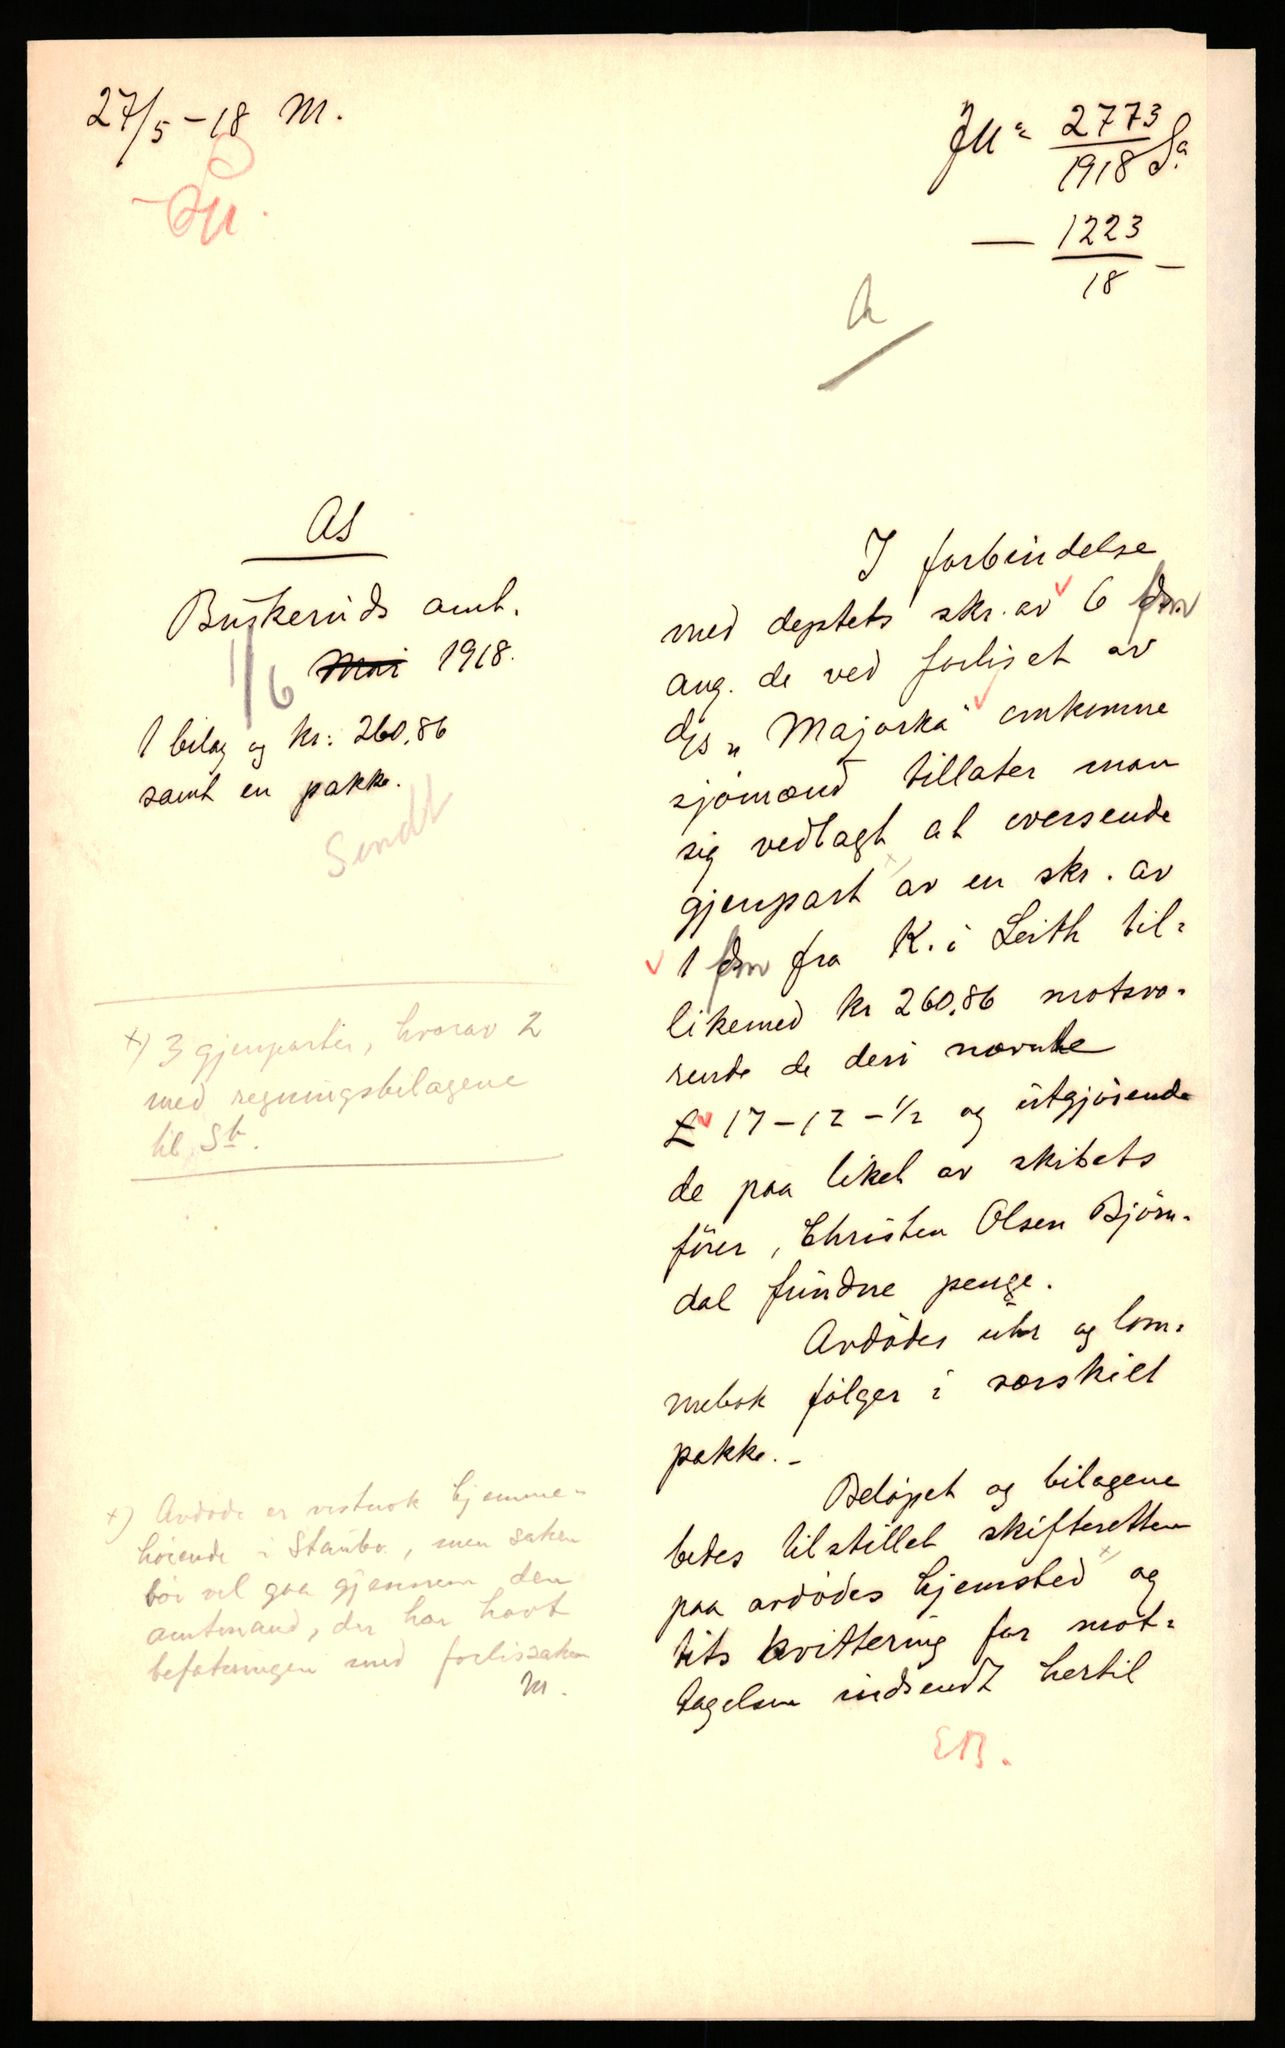 27/5 - 18 M.
JN: 2773/1918 Sa.
— 1223/18 —
AS
Buskeruds amt.
1/6 Mai 1918.
1 bilag og kr: 260,86
samt en pakke.
Sendt
x) 3 gjenparter, hvorav 2
med regningsbilagene
til St.
x) Avdøde er vistnok hjemme-
hørende i Staubø, men saken
bør vel gaa gjennem den
amtmand, der har havt
befatningen med forlissaken
M.
I forbindelse
med deptets skr. av 6 fm
ang. de ved forliset av
D/S „Majorka" omkomne
sjömænd tillater man
sig vedlagt at oversende
gjenpart x) av en skr. av
1 fm fra K. i Leith til-
likemed kr 260,86 motsva-
rende de deri nævnte
£ 17-12-1/2 og utgjörende
de paa liket av skibets
förer, Christen Olsen Björn-
dal fundne penge.
Avdödes uhr og lom-
mebok fölger i særskilt
pakke. -
Belöpet og bilagene
bedes tilstillet skifteretten
paa avdödes hjemsted x) og
dets kvittering for mot-
tagelsen indsendt hertil
EB.